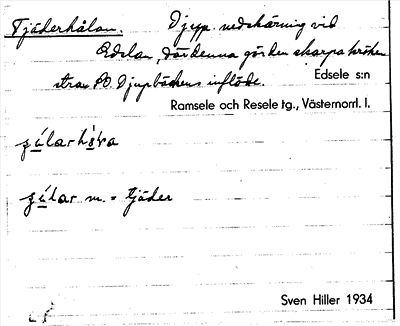 Tjäderhålan. Djup nedskärning vid
Edslan, där denna gör den skarpa kröken
strax SO Djupbäckens inflöde.
Edsele s:n
Ramsele och Resele tg., Västernorrl. l.
m. = tjäder
Sven Hiller 1934